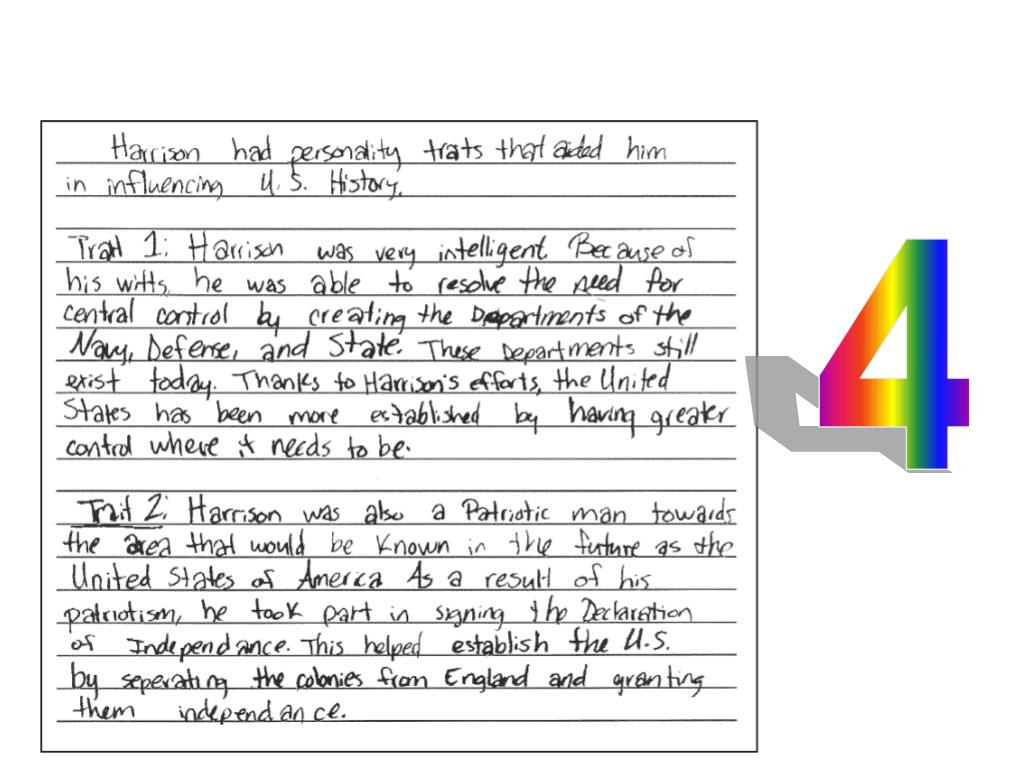 Harrison had personality traits that aided him
in influencing U.S. History.
Trait 1: Harrison was very intelligent Because of
his witts, he was able to resolve the need for
central control by creating the Departments of the
Navy, Defense, and State. These Departments still
exist today. Thanks to Harrison's efforts, the United
States has been more established by having greater
control where it needs to be.
Trait 2: Harrison was also a Patriotic man towards
the area that would be known in the future as the
United States of America As a result of his
patriotism, he took part in signing the Declaration
of Independance. This helped establish the U.S.
by seperating the colonies from England and granting
them independance.
4